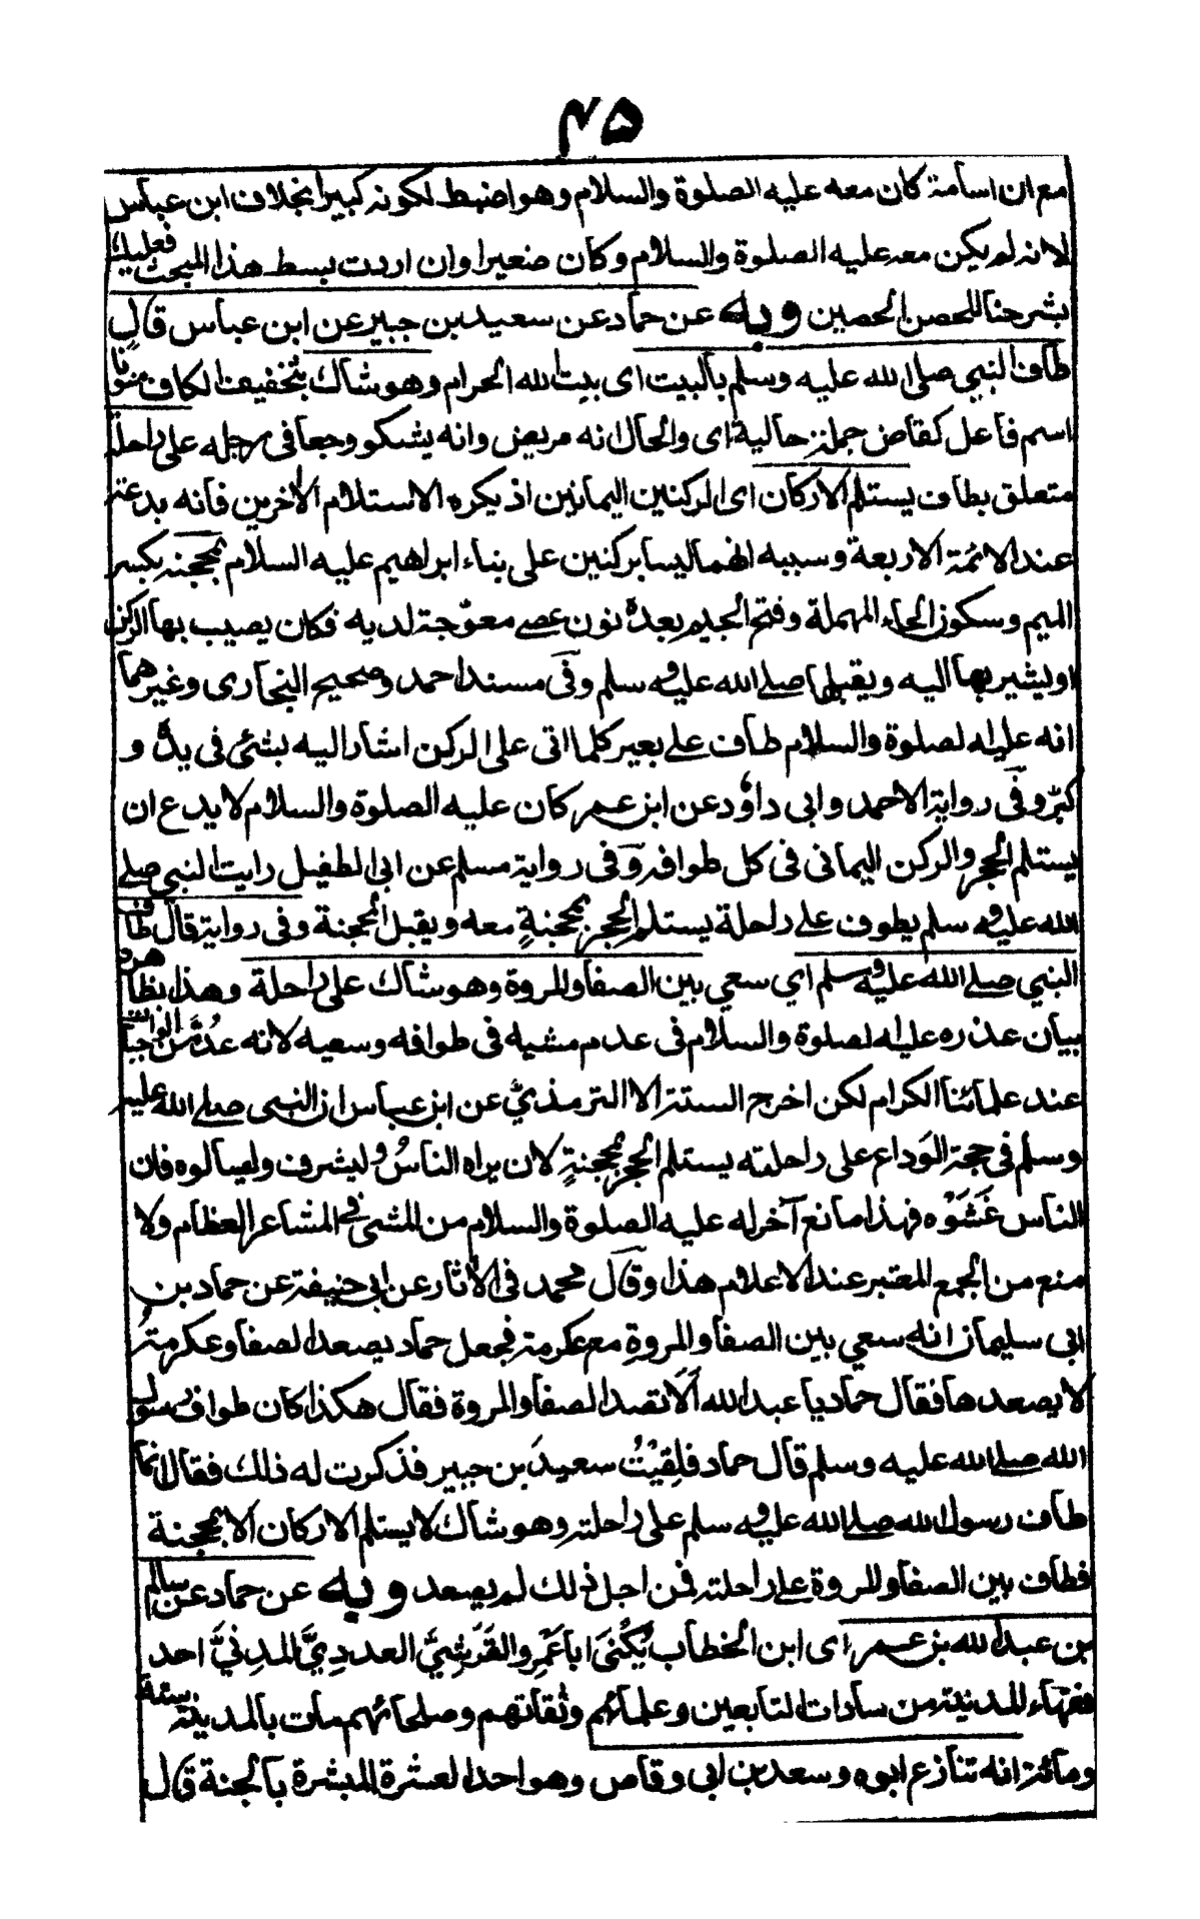 ٤٥
مع ان اسامة كان معه عليه الصلوة والسلام وهو اضبط لكونه كبيرا بخلاف ابن عباس
لانه لم يكن معه عليه الصلوة والسلام وكان صغيرا وان اردت بسط هذا المبحث فعليك
بشرحنا للحصن الحصين وبه عن حماد عن سعيد بن جبير عن ابن عباس قال
طاف النبي صلى الله عليه وسلم بالبيت اى بيت الله الحرام وهو شاك بتخفيف الكاف منونا
اسم فاعل كقاض جملة حالية اى والحال انه مريض وانه يشكو وجعا فى رجله على راحلة
متعلق بطاف يستلم الاركان اى الركنين اليمانين اذ يكره الاستلام الآخرين فانه بدعة
عند الائمة الاربعة وسببه انهما ليسا بركنين على بناء ابراهيم عليه السلام بمحجنه بكسر
الميم وسكون الحاء المهملة وفتح الجيم بعده نون عصے معوّجة لديه فكان يصيب بها الركن
او يشير بها اليه ويقبلها صلے الله عليه وسلم وفى مسند احمد وصحيح البخارى وغيرهما
انه عليه الصلوة والسلام طاف علے بعير كلما اتى على الركن اشار اليه بشئ فى يده و
كبّر وفى رواية لاحمد وابى داؤد عن ابن عمر كان عليه الصلوة والسلام لا يدع ان
يستلم الحجر والركن اليمانى فى كل طوافه وفى رواية مسلم عن ابى الطفيل رايت النبى صلے
الله عليه وسلم يطوف علے راحلة يستلم الحجر بمحجنةٍ معه ويقبل المحجنة وفى رواية قال طاف
النبي صلے الله عليه وسلم اي سعي بين الصفا والمروة وهو شاك على راحلة وهذا بظاهره
بيان عذره عليه الصلوة والسلام فى عدم مشيه فى طوافه وسعيه لانه عُدّ من الواجبات
عند علمائنا الكرام لكن اخرج الستة الا الترمذيّ عن ابن عباس ان النبى صلے الله عليه
وسلم فى حجة الوداع على راحلته يستلم الحجر بمحجنةٍ لان يراه الناسُ وليشرف وليسالوه فان
الناس غَشَوْه فهذا مانع آخر له عليه الصلوة والسلام من المشى فى المشاعر العظام ولا
منع من الجمع المعتبر عند الاعلام هذا وقال محمد فى الآثار عن ابى حنيفة عن حماد بن
ابى سليمان انه سعي بين الصفا والمروةِ مع عكرمة فجعل حماد يصعد الصفا وعكرمةُ
لا يصعدها فقال حماد يا عبد الله ألَا تصعد الصفا والمروة فقال هكذا كان طواف رسول
الله صلے الله عليه وسلم قال حماد فلقِيْتُ سعيدَ بن جبير فذكرت له ذلك فقال انما
طاف رسول الله صلے الله عليه وسلم على راحلته وهو شاك لا يستلم الاركان الا بمحجنة
فطاف بين الصفا والمروة علے راحلته فمن اجل ذلك لم يصعد وبه عن حماد عن سالم
بن عبد الله بن عمر اى ابن الخطاب يُكْنىَ ابا عَمْرو القَرَشِيَّ العددِيَّ المدِنيَّ احد
فقهاء المدينة من سادات التابعين وعلمائهم وثقاتهم وصلحائهم مات بالمدينة سنة
ومائة انه تنازع ابوه وسعد بن ابى وقاص وهو احد العشرة المبشرة بالجنة قال